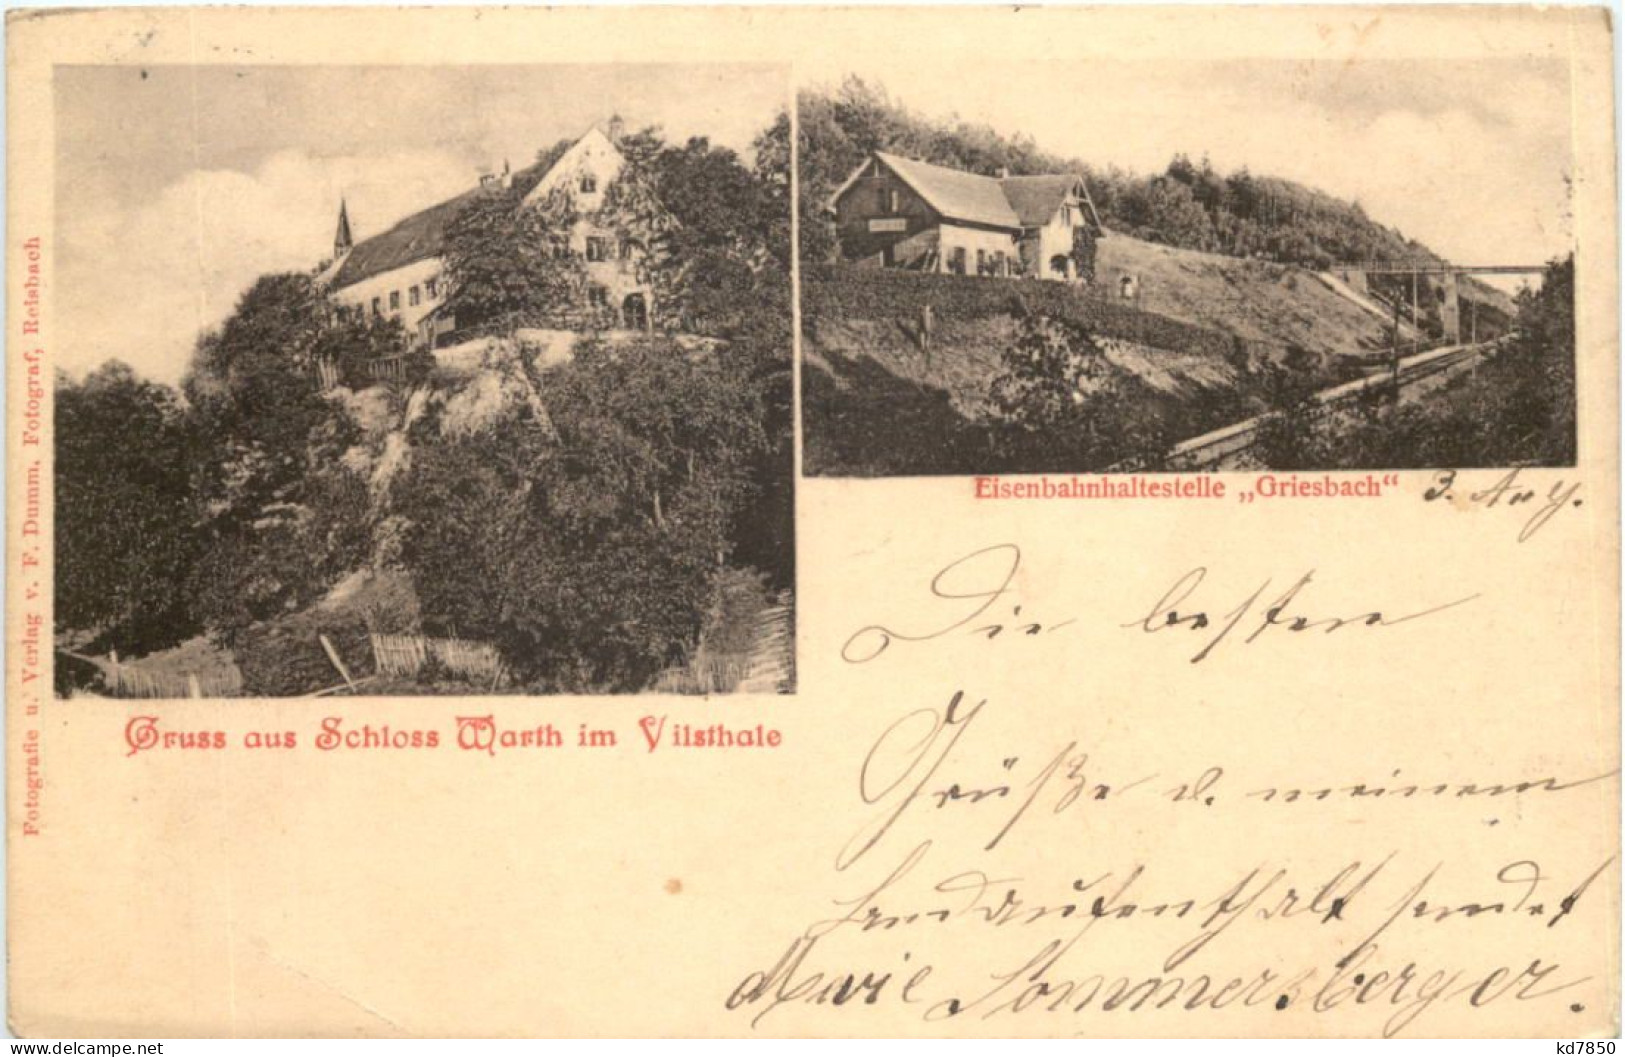 Fotografie u. Verlag v. F. Dumm, Fotograf, Reisbach
Gruss aus Schloss Warth im Vilsthale
Eisenbahnhaltestelle „Griesbach“
3. Aug.
Die besten
Grüße v. meinem
Landaufenthalt sendet
Marie Sommersberger.
www.delcampe.net
kd7850